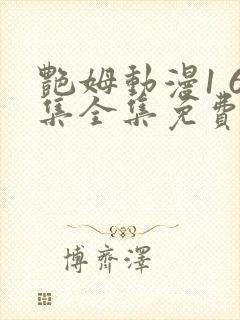 艷姆動漫1 6
集全集免費
博齊澤